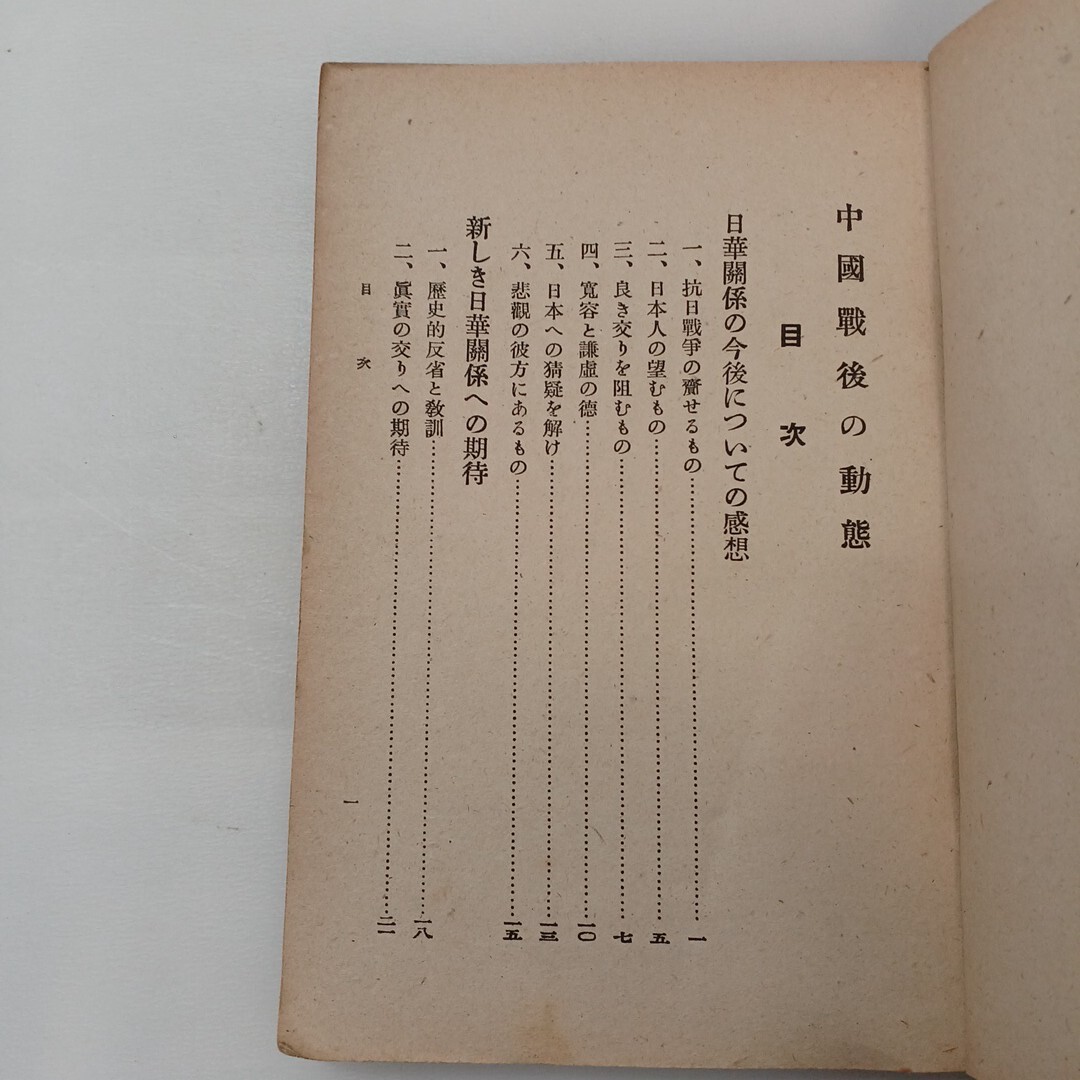 中國戰後の動態
目次
日華關係の今後についての感想
一、抗日戰爭の齎せるもの……一
二、日本人の望むもの……五
三、良き交りを阻むもの……七
四、寬容と謙虛の德……一〇
五、日本への猜疑を解け……一三
六、悲觀の彼方にあるもの……一五
新しき日華關係への期待
一、歷史的反省と敎訓……一八
二、眞實の交りへの期待……二一
目次
一